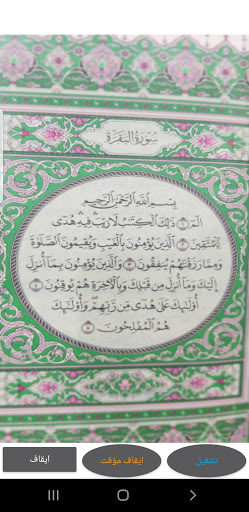 سُورَةُ البَقَرَةِ
بِسْمِ اللَّهِ الرَّحْمَٰنِ الرَّحِيمِ
الٓمٓ ۝١ ذَٰلِكَ الْكِتَٰبُ لَا رَيْبَ ۛ فِيهِ ۛ هُدًى
لِّلْمُتَّقِينَ ۝٢ الَّذِينَ يُؤْمِنُونَ بِالْغَيْبِ وَيُقِيمُونَ الصَّلَوٰةَ
وَمِمَّا رَزَقْنَٰهُمْ يُنفِقُونَ ۝٣ وَالَّذِينَ يُؤْمِنُونَ بِمَا أُنزِلَ
إِلَيْكَ وَمَا أُنزِلَ مِن قَبْلِكَ وَبِالْآخِرَةِ هُمْ يُوقِنُونَ ۝٤
أُولَٰئِكَ عَلَىٰ هُدًى مِّن رَّبِّهِمْ ۖ وَأُولَٰئِكَ
هُمُ الْمُفْلِحُونَ ۝٥
تشغيل
ايقاف مؤقت
ايقاف